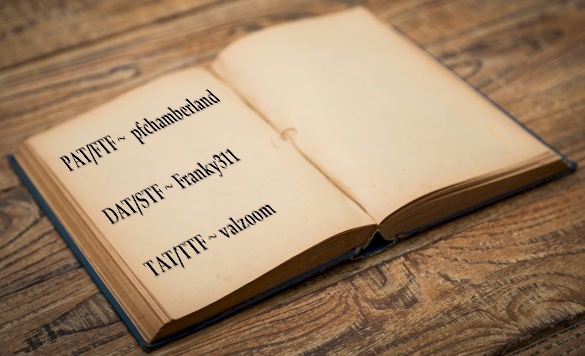 PAT/FTF ~ pfchamberland
DAT/STF ~ Franky311
TAT/TTF ~ valzoom